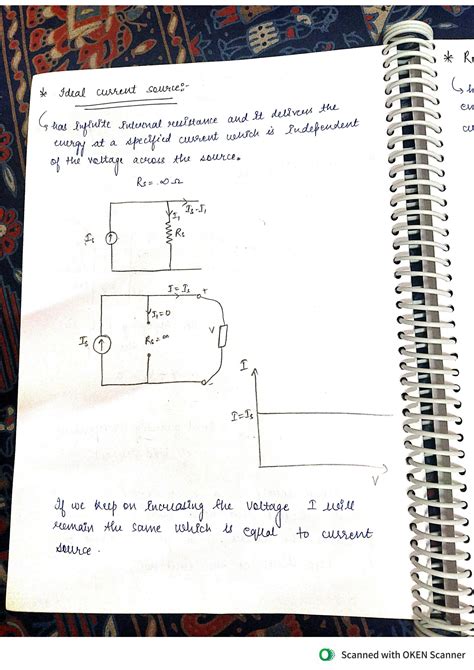 * Ideal current source:-
↳ has infinite internal resistance and it delivers the
energy at a specified current which is independent
of the voltage across the source.
Rs = ∞ Ω
Is - I1
I1
Is
Rs
I = Is
+
I1 = 0
Is
Rs = ∞
V
-
I
I = Is
V
If we keep on increasing the voltage I will
remain the same which is equal to current
source.
* R
Scanned with OKEN Scanner